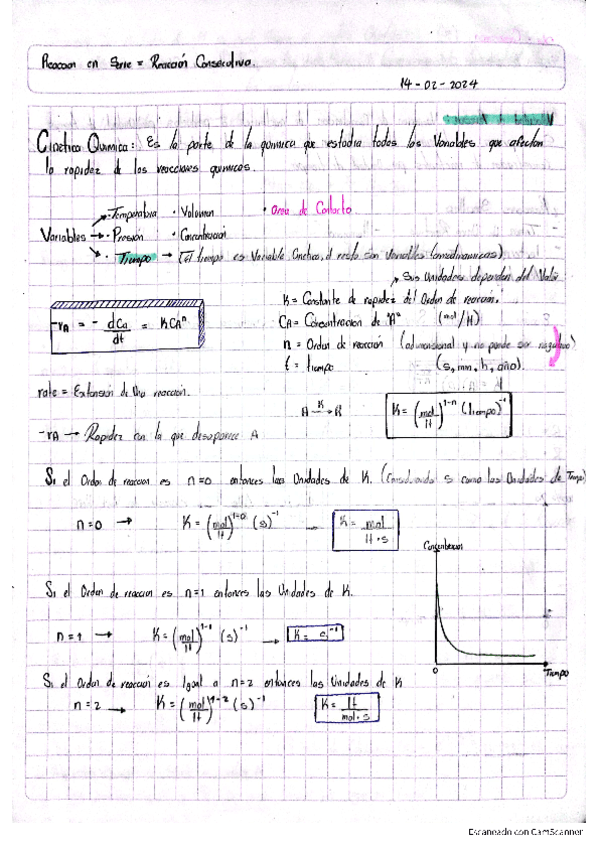 Reaccion en Serie = Reacción Consecutiva.
14-02-2024
Cinética Química: Es la parte de la quimica que estudia todas las Variables que afectan
la rapidez de las reacciones quimicas.
Variables → · Temperatura · Volumen · Area de Contacto
· Presión · Concentración
· Tiempo → (El tiempo es Variable Cinetica, el resto son variables termodinamicas).
-rA = - dCa/dt = KCAⁿ
K = Constante de rapidez del Orden de reacción. → Sus Unidades dependen del Valor
CA = Concentracion de "A" (mol/lt)
n = Orden de reacción (adimensional y no puede ser negativo)
t = tiempo (s, min, h, año).
rate = Extensión de una reacción.
A →K R
K = (mol/lt)^1-n (tiempo)^-1
-rA → Rapidez con la que desaparece A
Si el Orden de reaccion es n=0 entonces las Unidades de K. (Considerando s como las Unidades de Tiempo)
n=0 → K = (mol/lt)^1-0 (s)^-1 → K = mol/lt·s
Concentracion
Si el Orden de reaccion es n=1 entonces las Unidades de K.
n=1 → K = (mol/lt)^1-1 (s)^-1 → K = s^-1
0 Tiempo
Si el Orden de reacción es Igual a n=2 entonces las Unidades de K
n=2 → K = (mol/lt)^1-2 (s)^-1 K = lt/mol·s
Escaneado con CamScanner